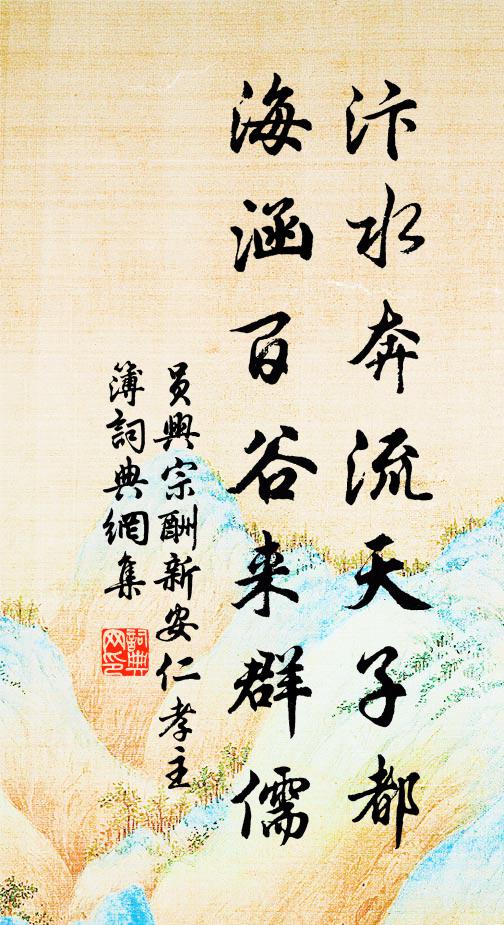 汴水奔流天子都
海涵百谷来群儒
员興宗酬新安仁孝主
簿詞典網集
詞典
网印